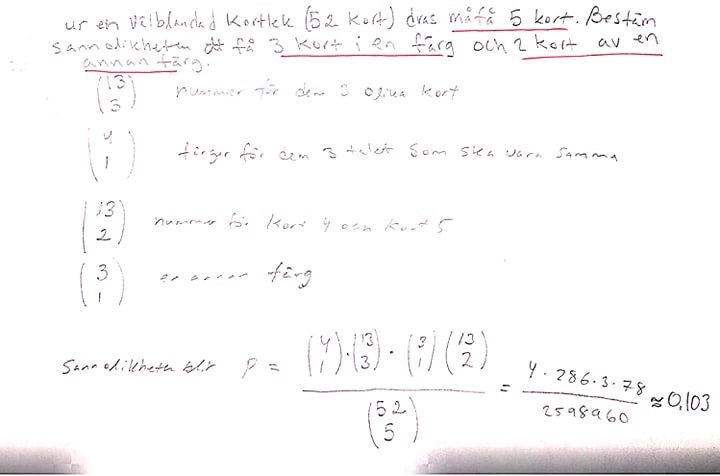 ur en välblandad kortlek (52 kort) dras måfå 5 kort. Bestäm
sannolikheten att få 3 kort i en färg och 2 kort av en
annan färg.
(13 3) nummer för dem 3 olika kort
(4 1) färger för dem 3 talet som ska vara samma
(13 2) nummer för kort 4 och kort 5
(3 1) en annan färg
Sannolikheten blir P = (4 1)·(13 3)·(3 1)(13 2) / (52 5) = 4·286·3·78 / 2598960 ≈ 0,103